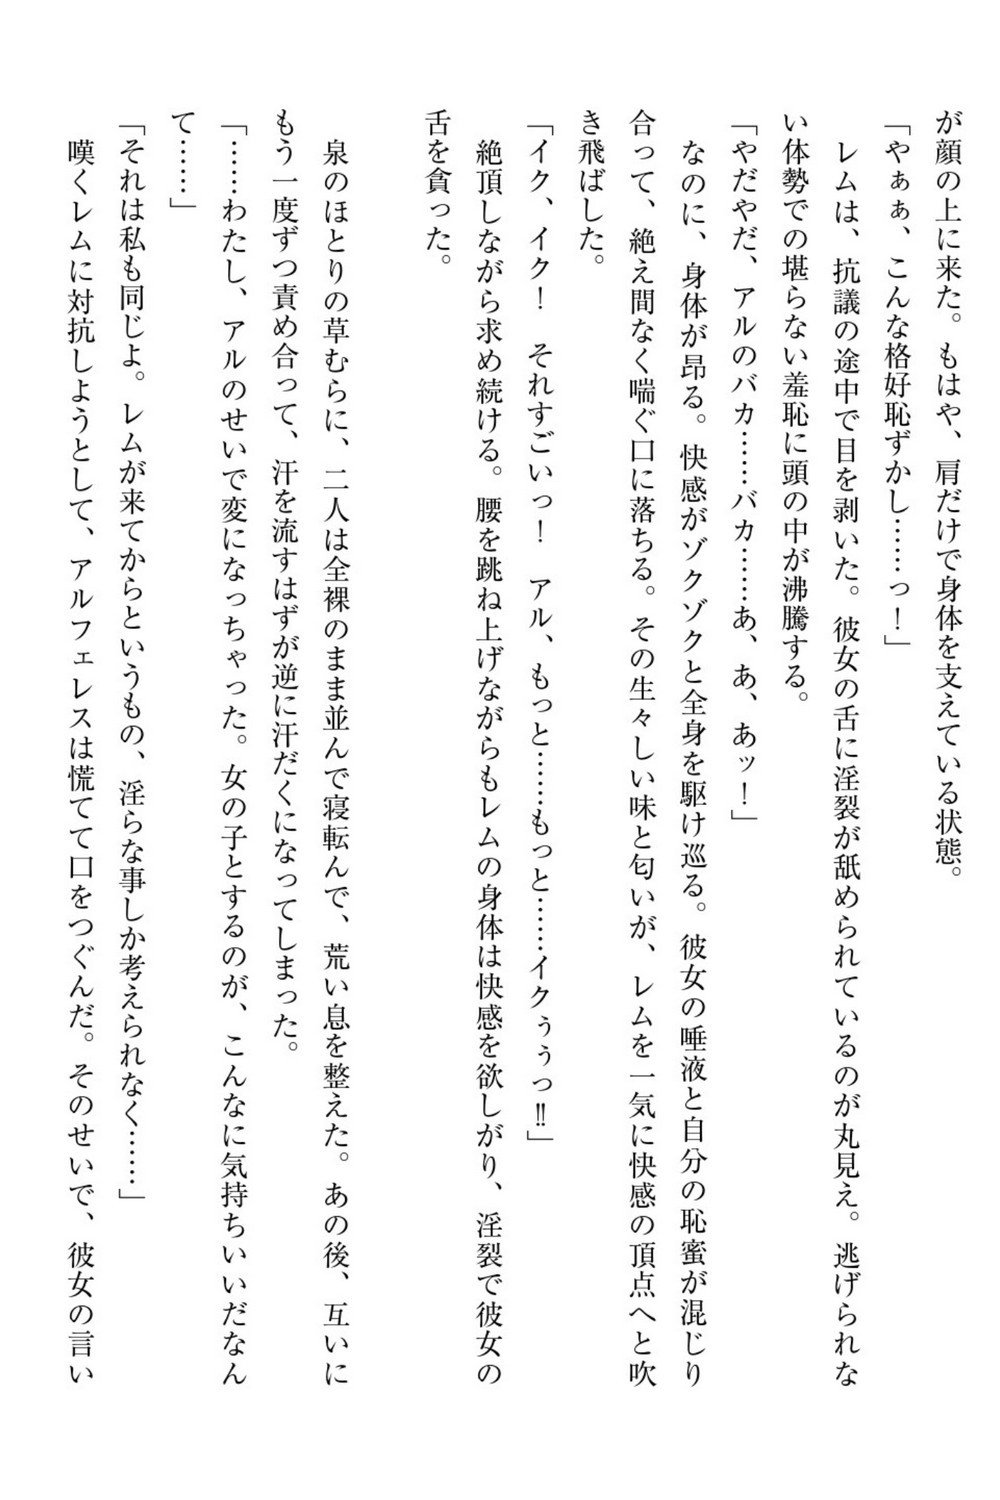 が顔の上に来た。もはや、肩だけで身体を支えている状態。
「やぁぁ、こんな格好恥ずかし……っ！」
レムは、抗議の途中で目を剥いた。彼女の舌に淫裂が舐められているのが丸見え。逃げられな
い体勢での堪らない羞恥に頭の中が沸騰する。
「やだやだ、アルのバカ……バカ……あ、あ、あッ！」
なのに、身体が昂る。快感がゾクゾクと全身を駆け巡る。彼女の唾液と自分の恥蜜が混じり
合って、絶え間なく喘ぐ口に落ちる。その生々しい味と匂いが、レムを一気に快感の頂点へと吹
き飛ばした。
「イク、イク！　それすごいっ！　アル、もっと……もっと……イクぅぅっ‼」
絶頂しながら求め続ける。腰を跳ね上げながらもレムの身体は快感を欲しがり、淫裂で彼女の
舌を貪った。
泉のほとりの草むらに、二人は全裸のまま並んで寝転んで、荒い息を整えた。あの後、互いに
もう一度ずつ責め合って、汗を流すはずが逆に汗だくになってしまった。
「……わたし、アルのせいで変になっちゃった。女の子とするのが、こんなに気持ちいいだなん
て……」
「それは私も同じよ。レムが来てからというもの、淫らな事しか考えられなく……」
嘆くレムに対抗しようとして、アルフェレスは慌てて口をつぐんだ。そのせいで、彼女の言い